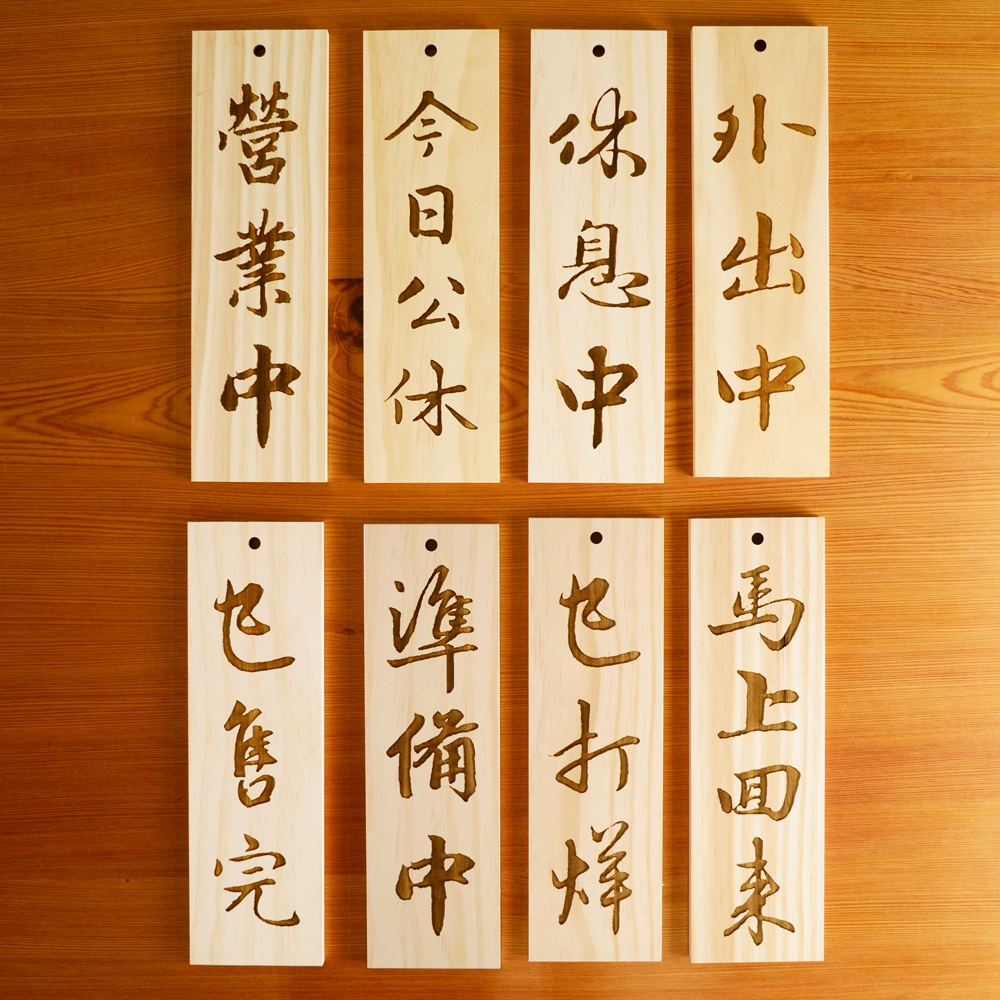 營業中
今日公休
休息中
外出中
已售完
準備中
已打烊
馬上回来